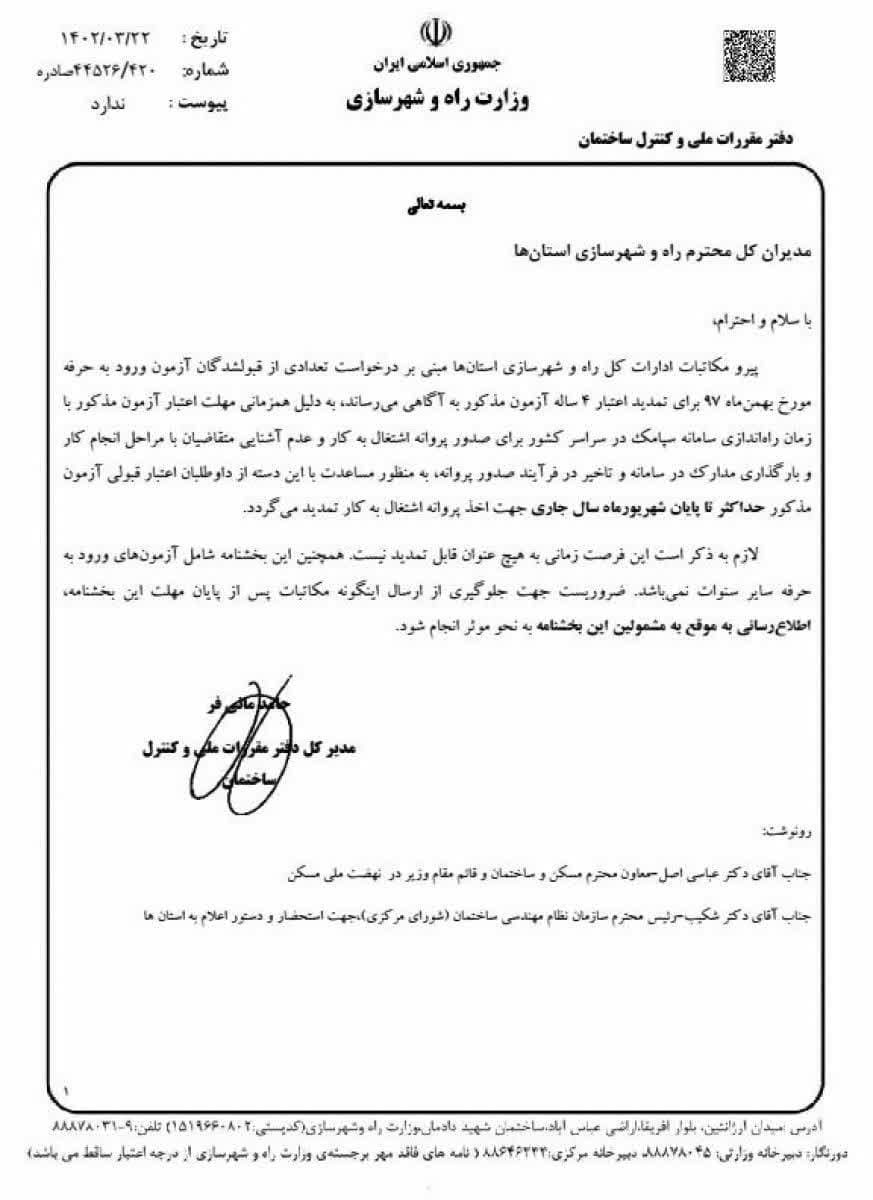 تاریخ : ۱۴۰۲/۰۳/۲۲
شماره: ۴۴۵۲۶/۴۲۰صادره
پیوست : ندارد
جمهوری اسلامی ایران
وزارت راه و شهرسازی
دفتر مقررات ملی و کنترل ساختمان
بسمه تعالی
مدیران کل محترم راه و شهرسازی استان‌ها
با سلام و احترام،
پیرو مکاتبات ادارات کل راه و شهرسازی استان‌ها مبنی بر درخواست تعدادی از قبولشدگان آزمون ورود به حرفه
مورخ بهمن‌ماه ۹۷ برای تمدید اعتبار ۴ ساله آزمون مذکور به آگاهی می‌رساند، به دلیل همزمانی مهلت اعتبار آزمون مذکور با
زمان راه‌اندازی سامانه سپامک در سراسر کشور برای صدور پروانه اشتغال به کار و عدم آشنایی متقاضیان با مراحل انجام کار
و بارگذاری مدارک در سامانه و تاخیر در فرآیند صدور پروانه، به منظور مساعدت با این دسته از داوطلبان اعتبار قبولی آزمون
مذکور حداکثر تا پایان شهریورماه سال جاری جهت اخذ پروانه اشتغال به کار تمدید می‌گردد.
لازم به ذکر است این فرصت زمانی به هیچ عنوان قابل تمدید نیست. همچنین این بخشنامه شامل آزمون‌های ورود به
حرفه سایر سنوات نمی‌باشد. ضروریست جهت جلوگیری از ارسال اینگونه مکاتبات پس از پایان مهلت این بخشنامه،
اطلاع‌رسانی به موقع به مشمولین این بخشنامه به نحو موثر انجام شود.
حامد مانی فر
مدیر کل دفتر مقررات ملی و کنترل
ساختمان
رونوشت:
جناب آقای دکتر عباسی اصل-معاون محترم مسکن و ساختمان و قائم مقام وزیر در نهضت ملی مسکن
جناب آقای دکتر شکیب-رئیس محترم سازمان نظام مهندسی ساختمان (شورای مرکزی)،جهت استحضار و دستور اعلام به استان ها
۱
آدرس :میدان آرژانتین، بلوار افریقا،اراضی عباس آباد،ساختمان شهید دادمان،وزارت راه وشهرسازی(کدپستی:۱۵۱۹۶۶۰۸۰۲) تلفن:۹-۸۸۸۷۸۰۳۱
دورنگار: دبیرخانه وزارتی: ۸۸۸۷۸۰۴۵، دبیرخانه مرکزی:۸۸۶۴۶۲۳۳ ( نامه های فاقد مهر برجسته‌ی وزارت راه و شهرسازی از درجه اعتبار ساقط می باشد)